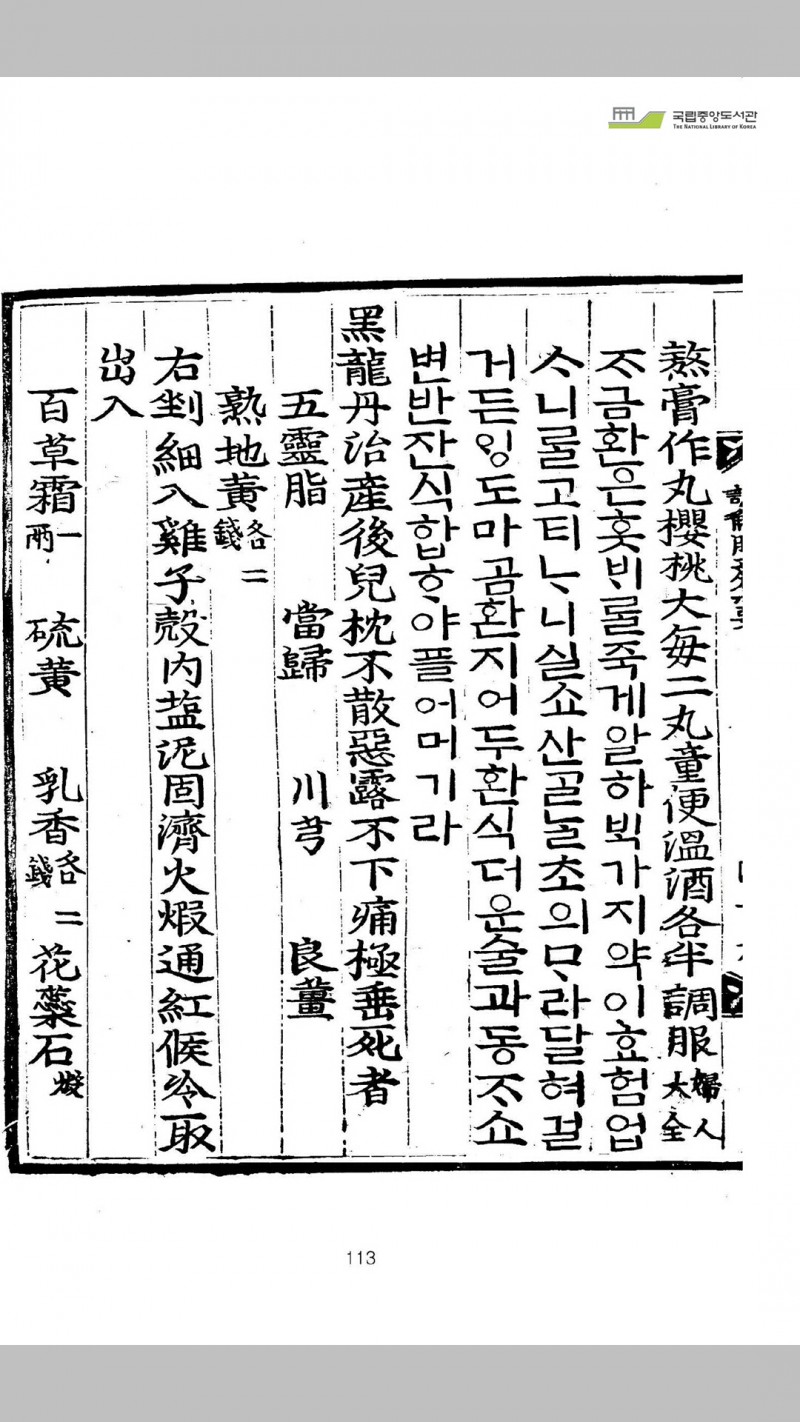 국립중앙도서관
THE NATIONAL LIBRARY OF KOREA
熬膏作丸櫻桃大每二丸童便溫酒各半調服婦人大全
ᄌᆞ금환은 훗ᄇᆡᄅᆞᆯ 죽게 알하 ᄇᆡᆨ가지 약이 효험 업
ᄉᆞ니ᄅᆞᆯ 고티ᄂᆞ니 실쇼산 ᄀᆞᆯᄂᆞᆯ 초의 ᄆᆞ라 달혀 걸
거든 잉도마곰 환 지어 두 환식 더운 술과 동ᄌᆞ쇼
변 반 잔식 합ᄒᆞ야 플어 머기라
黑龍丹治產後兒枕不散惡露不下痛極垂死者
五靈脂 當歸 川芎 良薑
熟地黃各二錢
右剉細入雞子殼內塩泥固濟火煆通紅候冷取
出入
百草霜一兩 硫黃 乳香各二錢 花蘂石煆
113